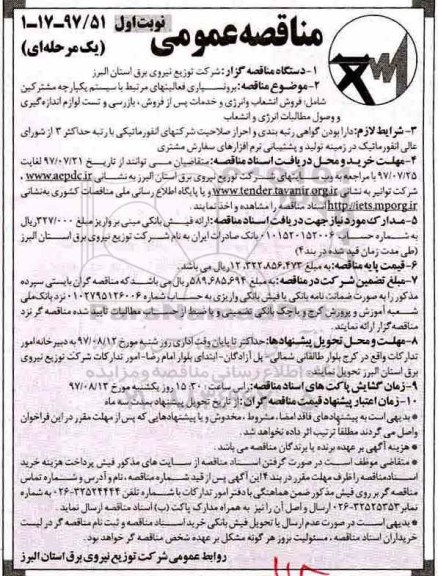 مناقصه عمومی
نوبت اول
۱-۱۷-۹۷/۵۱
(یک مرحله‌ای)
۱- دستگاه مناقصه گزار: شرکت توزیع نیروی برق استان البرز
۲- موضوع مناقصه: برونسپاری فعالیتهای مرتبط با سیستم یکپارچه مشترکین
شامل: فروش انشعاب وانرژی و خدمات پس از فروش، بازرسی و تست لوازم اندازه‌گیری
و وصول مطالبات انرژی و انشعاب
۳- شرایط لازم: دارا بودن گواهی رتبه بندی و احراز صلاحیت شرکتهای انفورماتیکی با رتبه حداکثر ۳ از شورای
عالی انفورماتیک در زمینه تولید و پشتیبانی نرم افزارهای سفارش مشتری
۴- مهلت خرید و محل دریافت اسناد مناقصه: متقاضیان می توانند از تاریخ ۹۷/۰۷/۲۱ لغایت
۹۷/۰۷/۲۵ با مراجعه به سایت های شرکت توزیع نیروی برق استان البرز به نشانی www.aepdc.ir ،
شرکت توانیر به نشانی www.tender.tavanir.org.ir و یا پایگاه اطلاع رسانی ملی مناقصات کشوری به‌نشانی
http://iets.mporg.ir اسناد مناقصه را مشاهده و اخذ نمایند.
۵- مدارک مورد نیاز جهت دریافت اسناد مناقصه: ارائه فیش بانکی مبنی بر واریز مبلغ ۳۲۷/۰۰۰ ریال
به شماره حساب ۰۱۰۱۵۲۰۱۵۲۰۰۶ بانک صادرات ایران به نام شرکت توزیع نیروی برق استان البرز
(طی مدت زمان قید شده در بند ۴)
۶- قیمت پایه مناقصه: به مبلغ ۱۲.۳۲۲.۸۵۶.۴۷۳ ریال می باشد.
۷- مبلغ تضمین شرکت در مناقصه: به مبلغ ۵۸۹.۶۸۵.۶۹۴ ریال می باشد که مناقصه گران بایستی سپرده
مذکور را به صورت ضمانت نامه بانکی یا فیش بانکی واریزی به حساب شماره ۰۱۰۲۷۹۵۱۲۶۰۰۶ نزد بانک ملی
شعبه آموزش و پرورش کرج و یا چک بانکی تضمینی و یا ضبط از حساب مطالبات تایید شده مناقصه گر نزد
مناقصه گزار ارائه نمایند.
۸- مهلت و محل تحویل پیشنهادها: حداکثر تا پایان وقت اداری روز شنبه مورخ ۹۷/۰۸/۱۲ به دبیرخانه امور
تدارکات واقع در کرج بلوار طالقانی شمالی- پل آزادگان- ابتدای بلوار امام رضا- امور تدارکات شرکت توزیع نیروی
برق استان البرز تحویل نمایند.
۹- زمان گشایش پاکت های اسناد مناقصه: راس ساعت ۱۵:۳۰ روز یکشنبه مورخ ۹۷/۰۸/۱۳
۱۰- زمان اعتبار پیشنهاد قیمت مناقصه گران: از تاریخ تحویل پیشنهاد بمدت سه ماه
* بدیهی است به پیشنهادهای فاقد امضا، مشروط، مخدوش و یا پیشنهادهایی که پس از مهلت مقرر در این فراخوان
واصل می گردند مطلقا ترتیب اثر داده نخواهد شد.
* هزینه آگهی بر عهده برنده یا برندگان مناقصه می باشد.
* متقاضی موظف است در صورت گرفتن اسناد مناقصه از سایت های مذکور فیش پرداخت هزینه خرید
اسناد مناقصه را ظرف مهلت مقرر در بند ۴ این آگهی پس از قید شماره مناقصه، نام و آدرس و شماره تماس
مناقصه گر بر روی فیش مذکور ضمن هماهنگی با دفتر امور تدارکات با شماره تلفن ۳۲۵۲۴۴۴۴-۰۲۶ به شماره
نمابر ۳۲۵۲۵۳۵۳-۰۲۶ ارسال و اصل آن را نیز به همراه مدارک پاکت (ب) اسناد مناقصه ارسال نماید.
* بدیهی است در صورت عدم ارسال یا تحویل فیش بانکی خرید اسناد مناقصه و ثبت نام مناقصه گر در لیست
خریداران اسناد مناقصه ، مسئولیت بروز هر گونه مشکل بر عهده شخص مناقصه گر خواهد بود.
روابط عمومی شرکت توزیع نیروی برق استان البرز